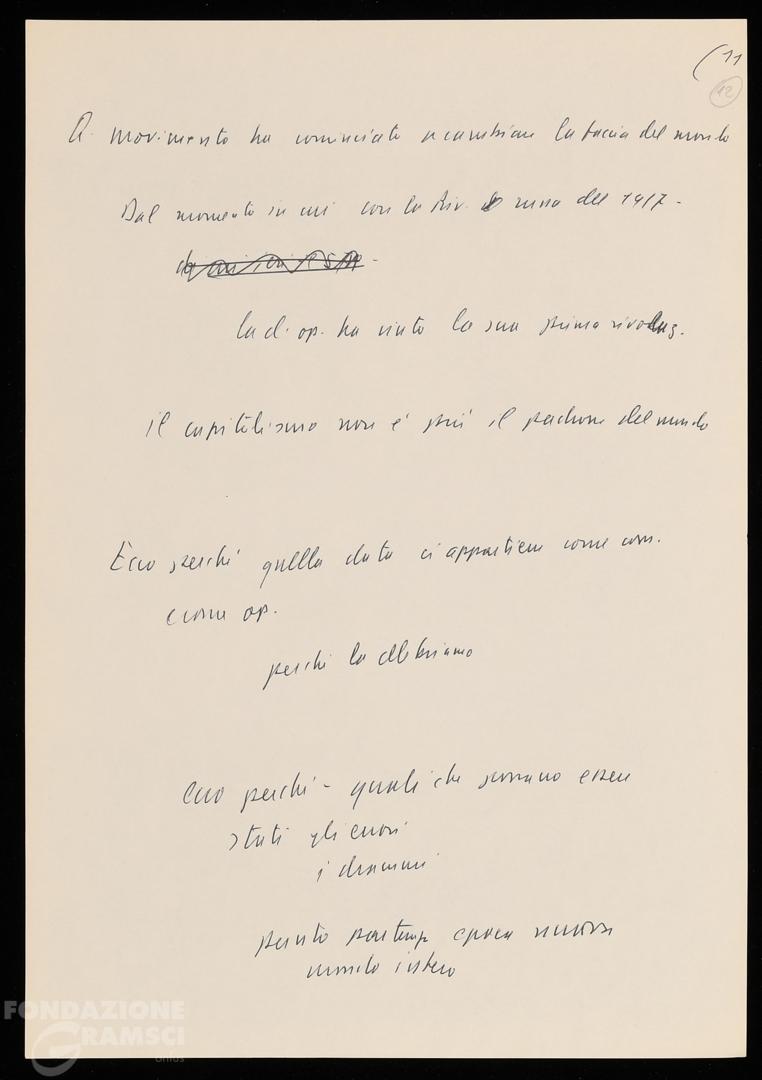 (11
12
Il movimento ha cominciato a cambiare la faccia del mondo
Dal momento in cui con la Riv. russa del 1917 -
la cl. op. ha vinto la sua prima rivoluz.
il capitalismo non è più il padrone del mondo
Ecco perché quella data ci appartiene come com.
e come op.
perché la dobbiamo
Ecco perché - quali che possano essere
stati gli errori
i drammi
punto partenz epoca nuova
mondo intero
FONDAZIONE
GRAMSCI
onlus